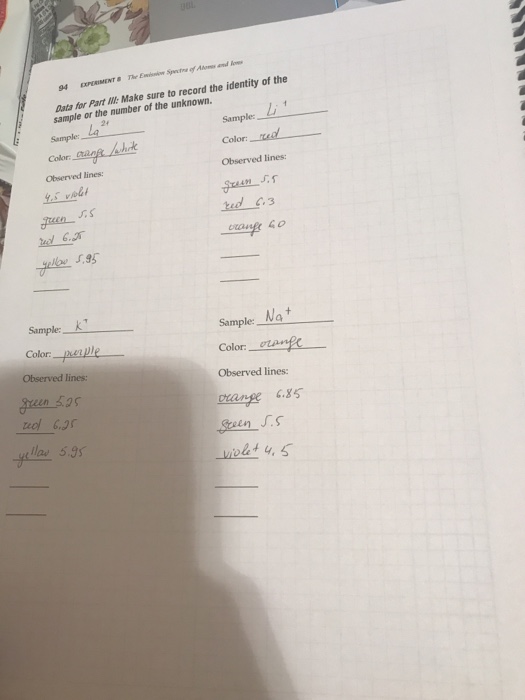 94 EXPERIMENT 8 The Emission Spectra of Atoms and Ions
Data for Part III: Make sure to record the identity of the
sample or the number of the unknown.
Sample: 2+
Color: orange/white
Observed lines:
4,5 violet
green 5.5
red 6.25
yellow 5.95
Sample: Li +
Color: red
Observed lines:
green 5.5
red 6.3
orange 6.0
Sample: K+
Color: purple
Observed lines:
green 5.25
red 6.25
yellow 5.95
Sample: Na+
Color: orange
Observed lines:
orange 6.85
green 5.5
violet 4,5